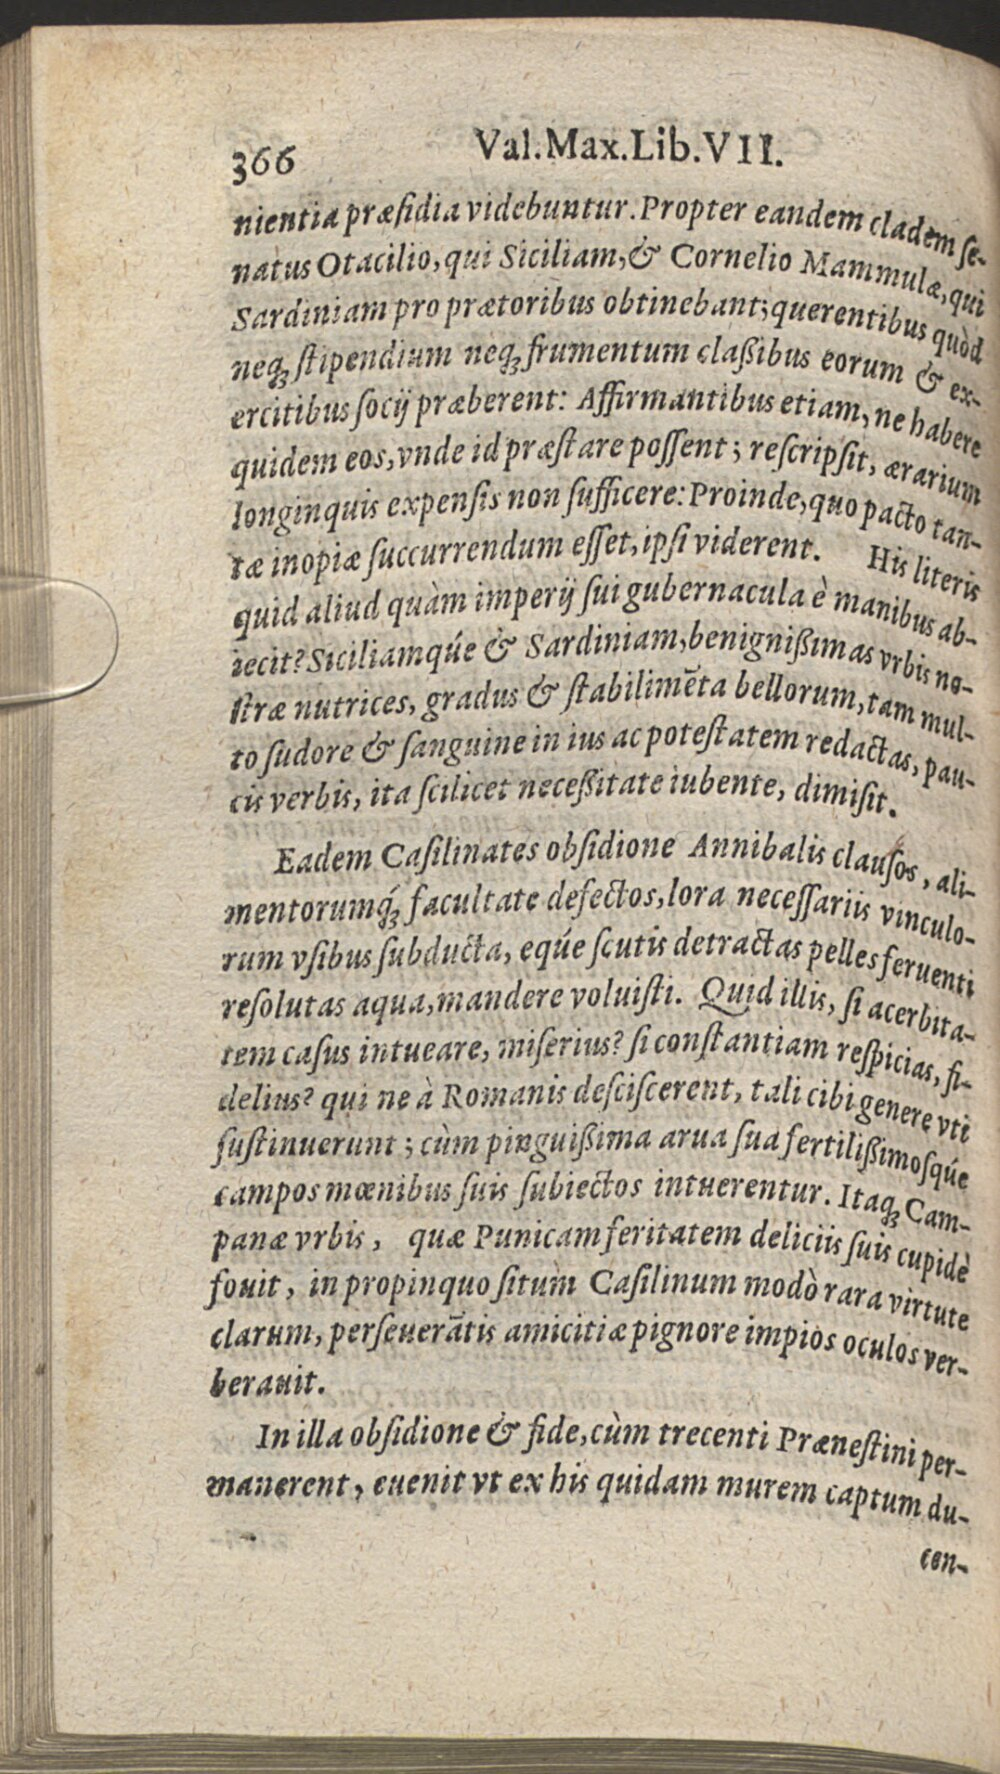 366 Val. Max. Lib. VII.
nientia præſidia videbuntur. Propter eandem cladem ſe-
natus Otacilio, qui Siciliam, & Cornelio Mammulæ, qui
Sardiniam pro prætoribus obtinebant; querentibus quòd
neqꝫ ſtipendium neqꝫ frumentum claßibus eorum & ex-
ercitibus ſocij præberent: Affirmantibus etiam, ne habere
quidem eos, vnde id præſtare poſſent; reſcripſit, ærarium
longinquis expenſis non ſufficere: Proinde, quo pacto tan-
tæ inopiæ ſuccurrendum eſſet, ipſi viderent. His literis
quid aliud quàm imperij ſui gubernacula è manibus ab-
iecit? Siciliamqúe & Sardiniam, benignißimas vrbis no-
ſtræ nutrices, gradus & ſtabilimēta bellorum, tam mul-
to ſudore & ſanguine in ius ac poteſtatem redactas, pau-
cis verbis, ita ſcilicet neceßitate iubente, dimiſit.
Eadem Caſilinates obſidione Annibalis clauſos, ali-
mentorumq́ꝫ facultate defectos, lora neceſſariis vinculo-
rum vſibus ſubducta, eqúe ſcutis detractas pelles feruenti
reſolutas aqua, mandere voluiſti. Quid illis, ſi acerbita-
tem caſus intueare, miſerius? ſi conſtantiam reſpicias, fi-
delius? qui ne à Romanis deſciſcerent, tali cibi genere vti
ſuſtinuerunt; cùm pinguißima arua ſua fertilißimoſqúe
campos mœnibus ſuis ſubiectos intuerentur. Itaqꝫ Cam-
panæ vrbis, quæ Punicam feritatem deliciis ſuis cupidè
fouit, in propinquo ſitum Caſilinum modò rara virtute
clarum, perſeuerātis amicitiæ pignore impios oculos ver-
berauit.
In illa obſidione & fide, cùm trecenti Præneſtini per-
manerent, euenit vt ex his quidam murem captum du-
cen-